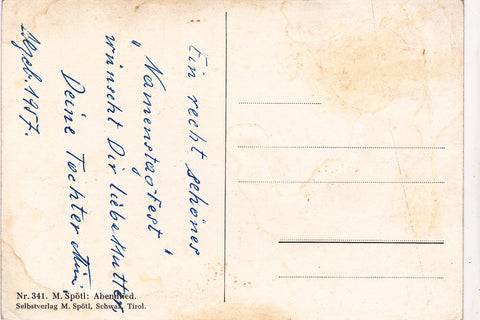 Ein recht schönes
„Namenstagfest"
wünscht Dir liebe Mutter
Deine Tochter Mimi
1957.
Nr. 341. M. Spötl: Abendlied.
Selbstverlag M. Spötl, Schwaz, Tirol.